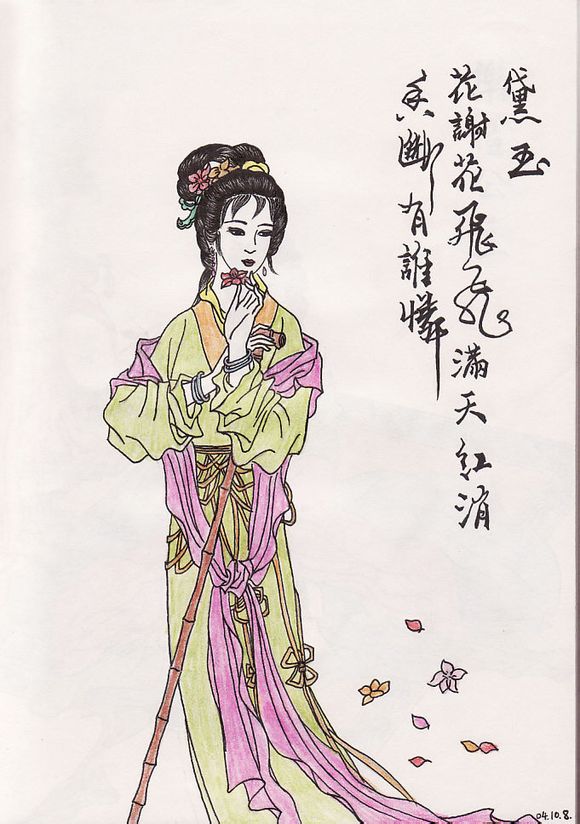 黛玉
花謝花飛飛滿天紅消
香斷有誰憐
04.10.8.